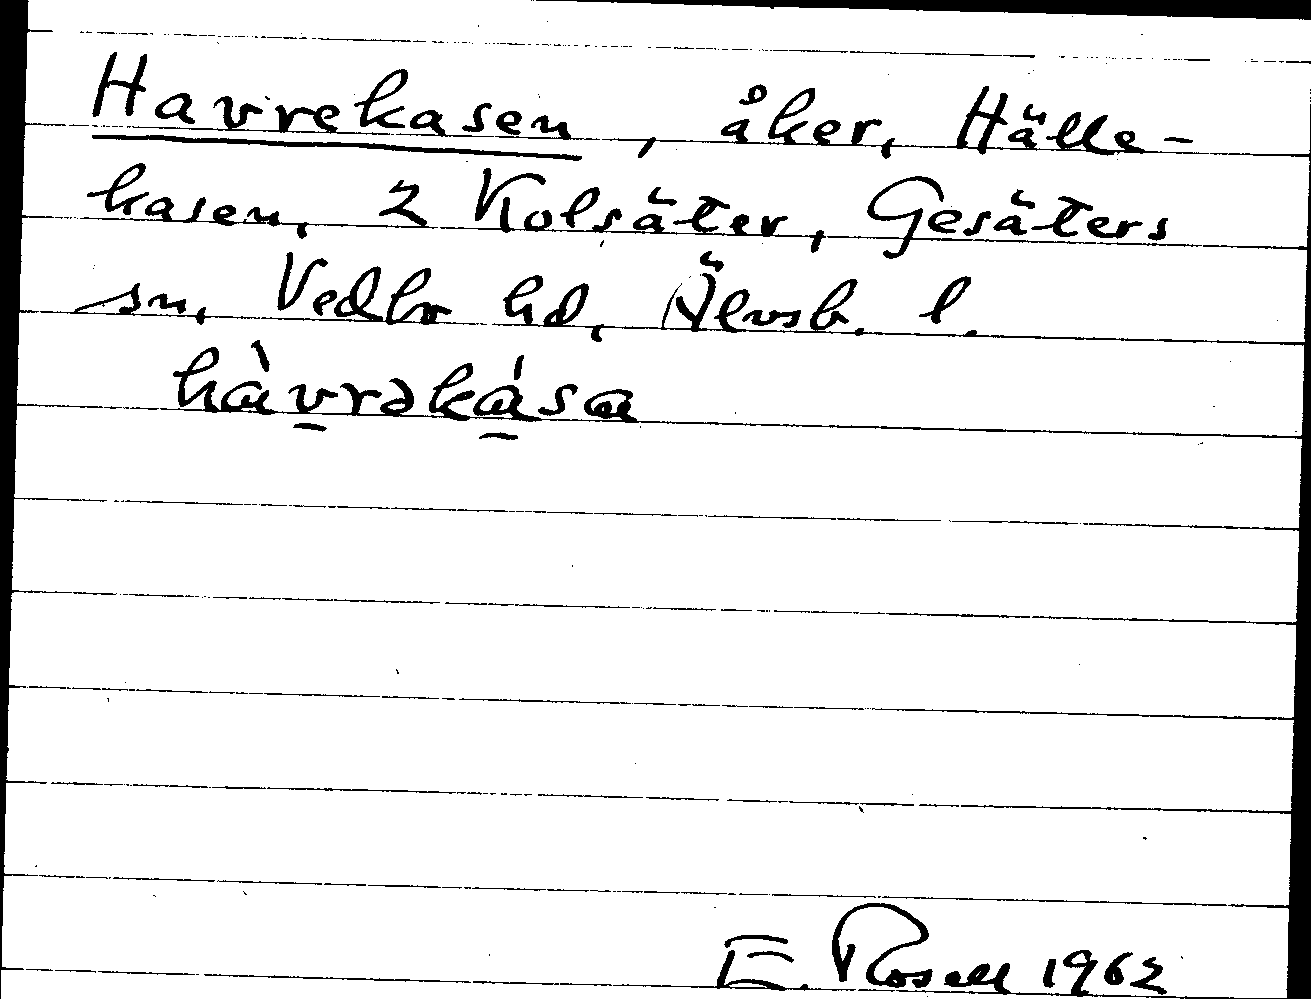 Havrekasen, åker, Hälle-
kasen, 2 Kolsäter, Gesäters
sn, Vedbo hd, Älvsb. l.
hàvrəkása
E. Rosell 1962